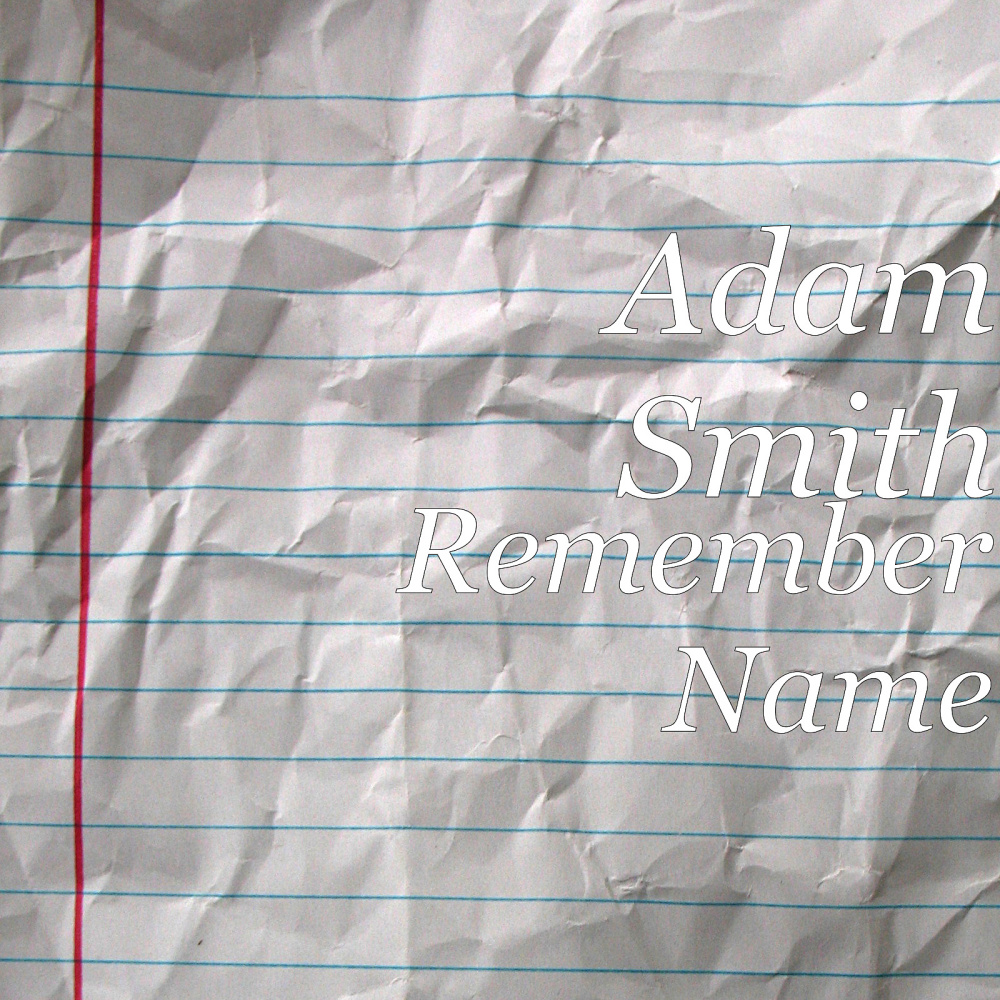 Adam
Smith
Remember
Name